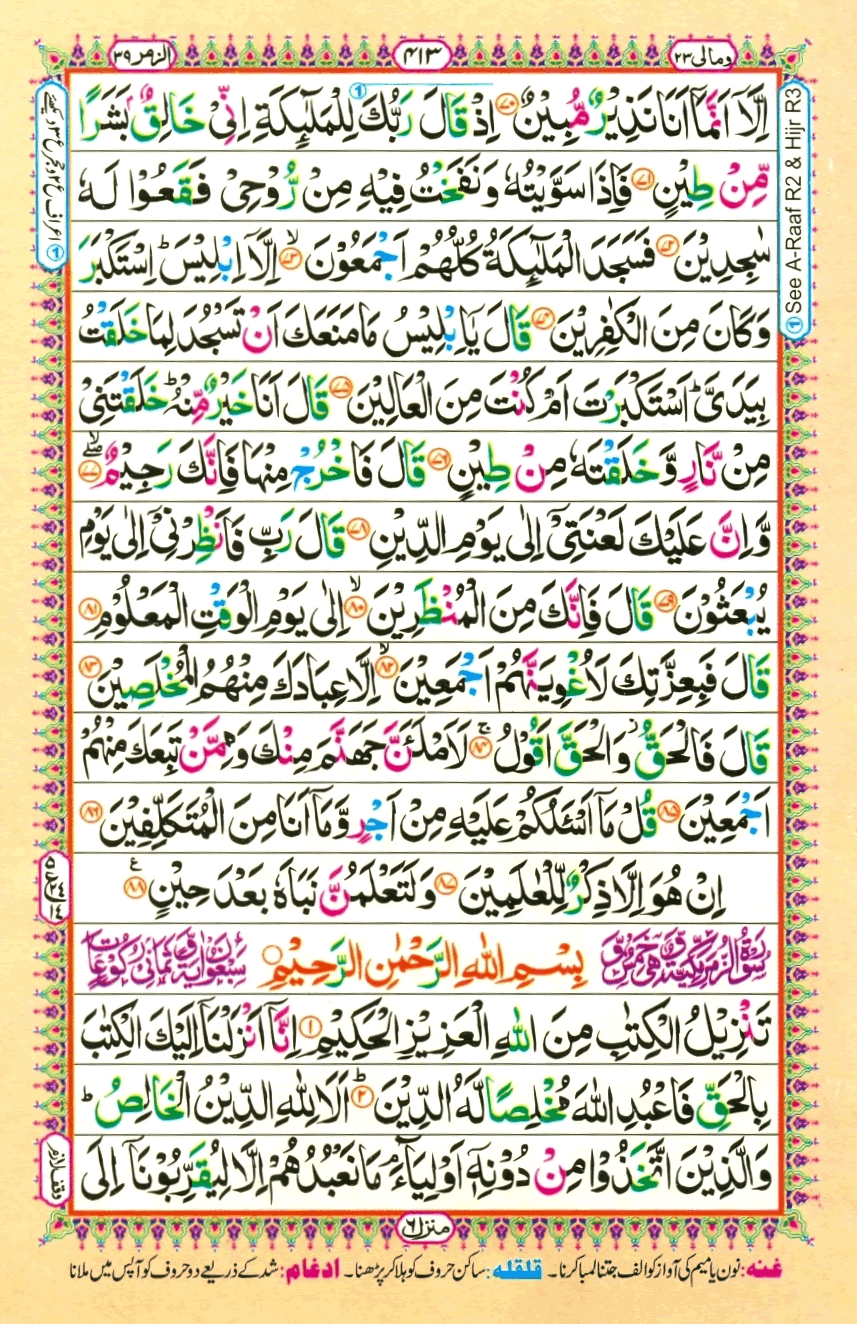 ومالی ٢٣
٤١٣
الزمر ٣٩
اِلَّاۤ اَنَّمَاۤ اَنَا نَذِیْرٌ مُّبِیْنٌ ﴿٧٠﴾ اِذْ قَالَ رَبُّكَ لِلْمَلٰٓىِٕكَةِ اِنِّیْ خَالِقٌۢ بَشَرًا
مِّنْ طِیْنٍ ﴿٧١﴾ فَاِذَا سَوَّیْتُهٗ وَ نَفَخْتُ فِیْهِ مِنْ رُّوْحِیْ فَقَعُوْا لَهٗ
سٰجِدِیْنَ ﴿٧٢﴾ فَسَجَدَ الْمَلٰٓىِٕكَةُ كُلُّهُمْ اَجْمَعُوْنَ ﴿٧٣﴾ۙ اِلَّاۤ اِبْلِیْسَ ؕ اِسْتَكْبَرَ
وَ كَانَ مِنَ الْكٰفِرِیْنَ ﴿٧٤﴾ قَالَ یٰۤاِبْلِیْسُ مَا مَنَعَكَ اَنْ تَسْجُدَ لِمَا خَلَقْتُ
بِیَدَیَّ ؕ اَسْتَكْبَرْتَ اَمْ كُنْتَ مِنَ الْعَالِیْنَ ﴿٧٥﴾ قَالَ اَنَا خَیْرٌ مِّنْهُ ؕ خَلَقْتَنِیْ
مِنْ نَّارٍ وَّ خَلَقْتَهٗ مِنْ طِیْنٍ ﴿٧٦﴾ قَالَ فَاخْرُجْ مِنْهَا فَاِنَّكَ رَجِیْمٌ ﴿٧٧﴾ۖۚ
وَّ اِنَّ عَلَیْكَ لَعْنَتِیْۤ اِلٰی یَوْمِ الدِّیْنِ ﴿٧٨﴾ قَالَ رَبِّ فَاَنْظِرْنِیْۤ اِلٰی یَوْمِ
یُبْعَثُوْنَ ﴿٧٩﴾ قَالَ فَاِنَّكَ مِنَ الْمُنْظَرِیْنَ ﴿٨٠﴾ۙ اِلٰی یَوْمِ الْوَقْتِ الْمَعْلُوْمِ ﴿٨١﴾
قَالَ فَبِعِزَّتِكَ لَاُغْوِیَنَّهُمْ اَجْمَعِیْنَ ﴿٨٢﴾ۙ اِلَّا عِبَادَكَ مِنْهُمُ الْمُخْلَصِیْنَ ﴿٨٣﴾
قَالَ فَالْحَقُّ ؗ وَ الْحَقَّ اَقُوْلُ ﴿٨٤﴾ۚ لَاَمْلَـَٔنَّ جَهَنَّمَ مِنْكَ وَ مِمَّنْ تَبِعَكَ مِنْهُمْ
اَجْمَعِیْنَ ﴿٨٥﴾ قُلْ مَاۤ اَسْـَٔلُكُمْ عَلَیْهِ مِنْ اَجْرٍ وَّ مَاۤ اَنَا مِنَ الْمُتَكَلِّفِیْنَ ﴿٨٦﴾
اِنْ هُوَ اِلَّا ذِكْرٌ لِّلْعٰلَمِیْنَ ﴿٨٧﴾ وَ لَتَعْلَمُنَّ نَبَاَهٗ بَعْدَ حِیْنٍ ﴿٨٨﴾ ع
بِسْمِ اللّٰهِ الرَّحْمٰنِ الرَّحِیْمِ
تَنْزِیْلُ الْكِتٰبِ مِنَ اللّٰهِ الْعَزِیْزِ الْحَكِیْمِ ﴿١﴾ اِنَّاۤ اَنْزَلْنَاۤ اِلَیْكَ الْكِتٰبَ
بِالْحَقِّ فَاعْبُدِ اللّٰهَ مُخْلِصًا لَّهُ الدِّیْنَ ﴿٢﴾ؕ اَلَا لِلّٰهِ الدِّیْنُ الْخَالِصُ ؕ
وَ الَّذِیْنَ اتَّخَذُوْا مِنْ دُوْنِهٖۤ اَوْلِیَآءَ ۘ مَا نَعْبُدُهُمْ اِلَّا لِیُقَرِّبُوْنَاۤ اِلَی
منزل ٦
غنہ: نون یا میم کی آواز کو الف جتنا لمبا کرنا۔ قلقلہ: ساکن حروف کو ہلا کر پڑھنا۔ ادغام: شد کے ذریعے دو حروف کو آپس میں ملانا
① See A-Raaf R2 & Hijr R3